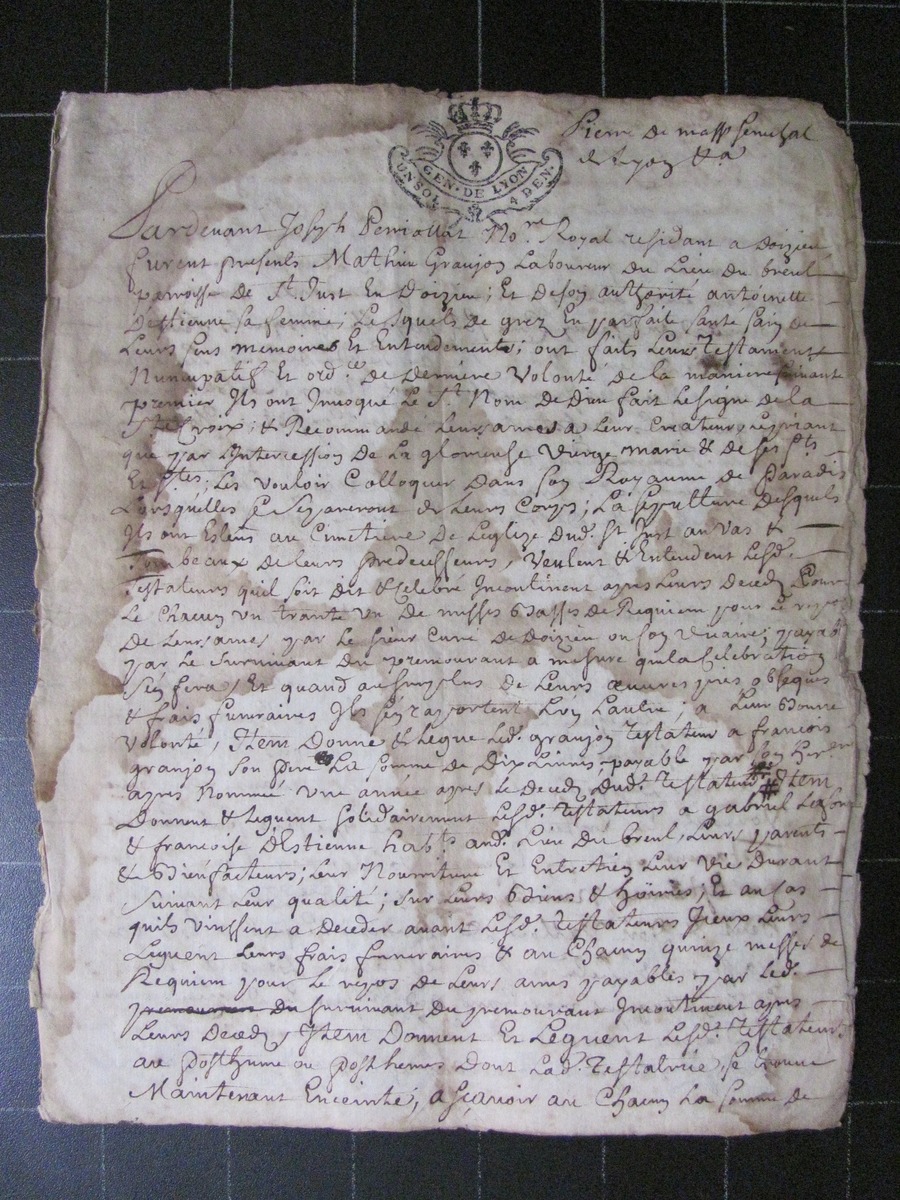 GEN · DE LYON
UN SOL 4 DEN.
Pierre de masso Senechal
de Lyon &a
Pardevant Joseph Perriollat No.re Royal residant a Doizieu
furent presents Mathieu Granjon Laboureur du Lieu du breuil
parroisse de St. Just En Doizieu; Et de son authorité antoinette
D'Estienne sa femme; Lesquels de grez En parfaite santé sains de
Leurs sens memoires Et Entendements; ont faits Leurs Testament
Nuncupatif Et ord.ce de derniere Volonté de la maniere suivante
premier Ils ont Invoqué Le St. Nom de Dieu fait Le signe de la
Ste. Croix; & Recommandé Leurs ames a Leur Createur Le priant
que par L'Intercession de La glorieuse Vierge marie & de ses Sts.
Et Stes; Les Vouloir Colloquer Dans son Royaume de Paradis
Lorsquelles se separeront de Leurs Corps; La sepulture desquels
Ils ont Esleus au Cimetiere De L'eglize Dud. St. Just au Vas &
Tombeaux de Leurs predecesseurs, Veulent & Entendent Lesd.
Testateurs quil soit dit & Celebré Incontinent apres Leurs Decedz Pour
Le Chacun Un trante Un de messes basses de Requiem pour Le repos
De Leurs ames par Le sieur Curé de Doizieu ou son Vicaire; payab
par Le survivant du premourant a mesure que la Celebration
S'en fera, Et quand au surplus de Leurs œuvres pies obseques
& frais funeraires Ils s'en rapportent L'un L'autre; a Leur bonne
Volonté, Item Donne & Legue Led. granjon Testateur a francois
granjon son pere La somme de Dix Livres, payable par son Her.er
apres Nommé Une année apres Le Decedz Dud. Testateur # Item
Donnent & Leguent solidairement Lesd. Testateurs a gabriel
& francoise D'Estienne hab.ts aud. Lieu Du breul, Leurs parents
& Biénfacteurs; Leur Nourriture Et Entretien Leur Vie Durant
Suivant Leur qualité; Sur Leurs Biens & Hoiries; Et au Cas
quils Vinssent a Deceder avant Lesd. Testateurs Iceux Leurs
Leguent Leurs frais funeraires & au Chacun quinze messes de
Requiem pour Le repos de Leurs ames payables par Led.
premourant du survivant du premourant Incontinent apres
Leurs Decedz, Item Donnent Et Leguent Lesd. Testateurs
au posthume ou posthumes dont Lad. Testatrice se trouve
Maintenant Enceinte; a sçavoir au Chacun La somme de